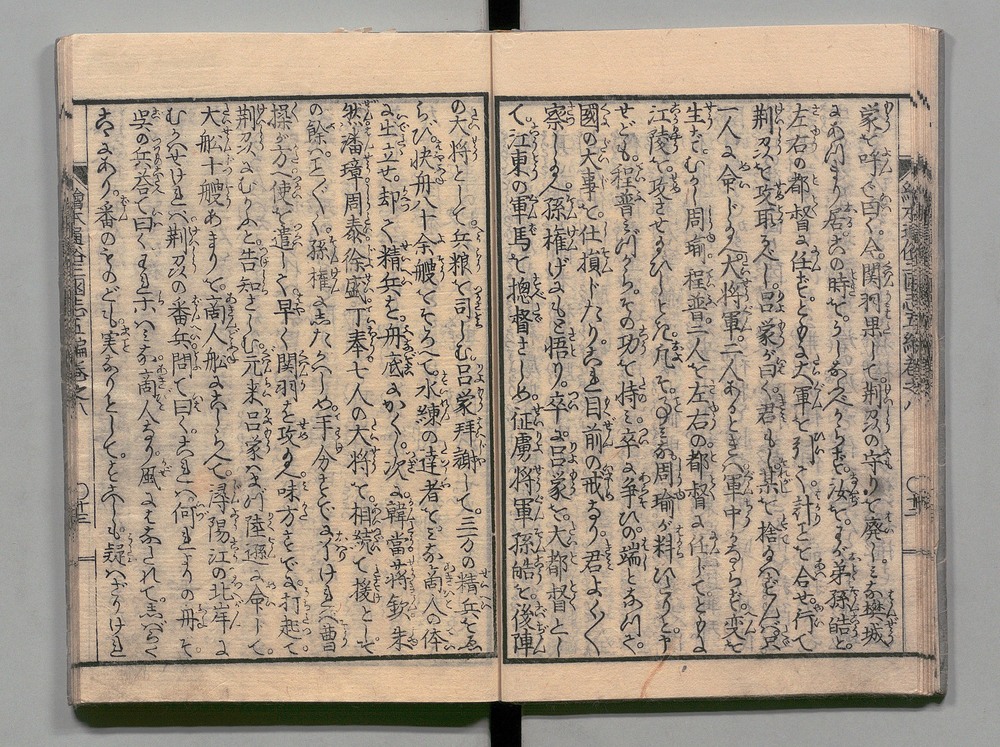 蒙を呼で曰く今関羽果して荊刕の守りを廃しミな樊城
にあつまり居るの時をうしなふべからず汝とわが弟孫皓と
左右の都督に任ずともに大軍を引て計ごとを合せ行て
荊刕を攻取べし呂蒙が曰く君もし某を捨るほどならバ
一人に命じ大将軍二人あるときハ軍中かならず変を
生ずむかし周瑜程普二人を左右の都督に任じてともに
江陵を攻させ給ひしとき凡その事ミな周瑜が料ひなりと
せども程普ミづからその功を恃ミ卒に争ひの端となつて
國の大事を仕損じたりこれ目前の戒なり君よくよく
察し給へ孫権げにもと悟り卒に呂蒙を大都督とし
て江東の軍馬を摠督さしめ征虜将軍孫皓を後陣
の大将として兵粮を司しむ呂蒙拝謝して三万の精兵をゑ
らび快舟八十余艘をそろへて水練の達者をミな商人の体
に出立せ却て精兵を舟底にかくし次に韓當蒋欽朱
然潘璋周泰徐盛丁奉七人の大将を相続て援として
の餘ハことごとく孫権にしたがハしめ手分すでにすミけれバ曹
操が方へ使を遣して早く関羽を攻め給へ味方すでに打起て
荊刕にむかふと告知さしむ元来呂蒙ハまづ陸遜に命して
大舩十艘あまりを商人舩にこしらへて潯陽江の北岸に
むかハせけれバ荊刕の番兵問て曰くこれハ何れよりの舟ぞ
呉の兵答て曰くわれ等ハミな商人なり風にをくられてしバらく
こゝにあり番のものども実なりとしてそこしも疑ハざりけれ
繪本通俗三國志五編巻之八
〇廿三